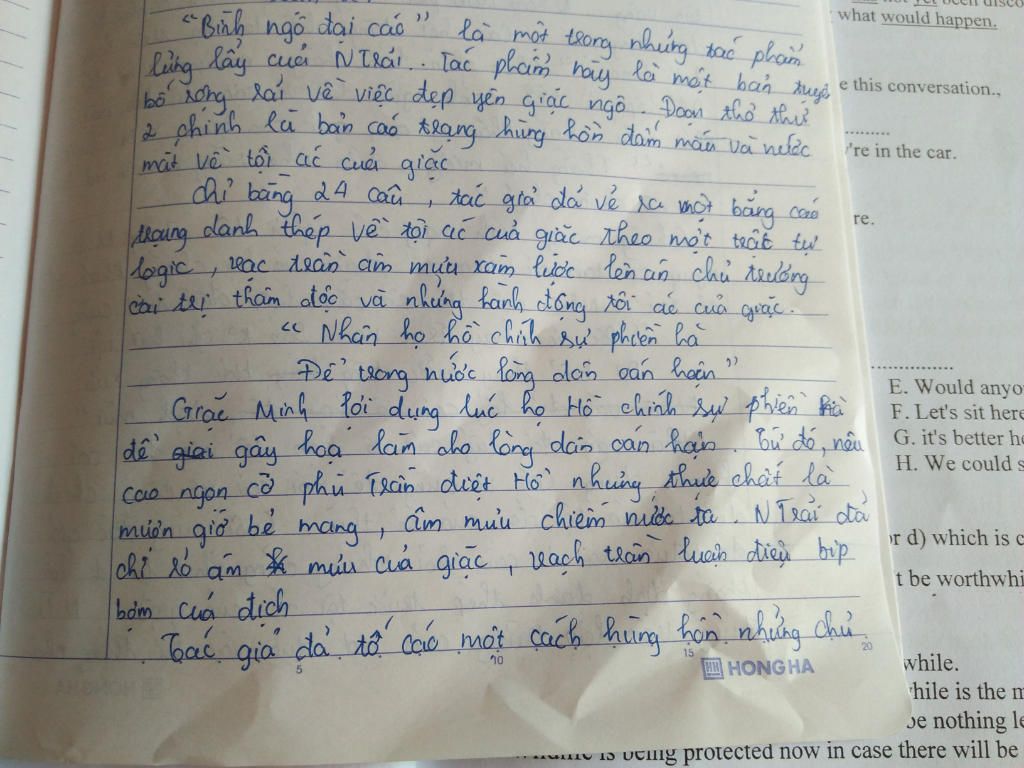 what would happen.
"Bình ngô đại cáo" là một trong những tác phẩm
lừng lẫy cuả NTrãi. Tác phẩm này là một bản tuyê
bố rộng rãi về việc dẹp yên giặc ngô. Đoạn thơ thứ
2 chính là bản cáo trạng hùng hồn đẫm máu và nước
mắt về tội ác cuả giặc
Chỉ bằng 24 câu, tác giả đã vẽ ra một bảng cáo
trạng danh thép về tội ác cuả giặc theo một trật tự
logic, vạc trần âm mưu xâm lược lên án chủ trương
cai trị thâm độc và những hành động tôi ác của giặc.
"Nhân họ hồ chính sự phiền hà
Để trong nước lòng dân oán hoận"
Giặc Minh lợi dụng luc họ Hồ chính sự phiền hà
để gây hoạ làm cho lòng dân oán hận. Từ đó, nêu
cao ngọn cờ phù Trần diệt Hồ nhưng thực chất là
mượn gió bẻ mang, âm mưu chiếm nước ta. NTrãi đã
chỉ rõ âm mưu cuả giặc, vạch trần luận điệu bịp
bợm cuả địch
Tác giả đã tố cáo một cách hùng hồn những chủ
5 10 15 20
HONG HA
e this conversation.,
're in the car.
re.
E. Would anyo
F. Let's sit here
G. it's better he
H. We could s
or d) which is c
t be worthwhi
while.
while is the m
be nothing le
is being protected now in case there will be